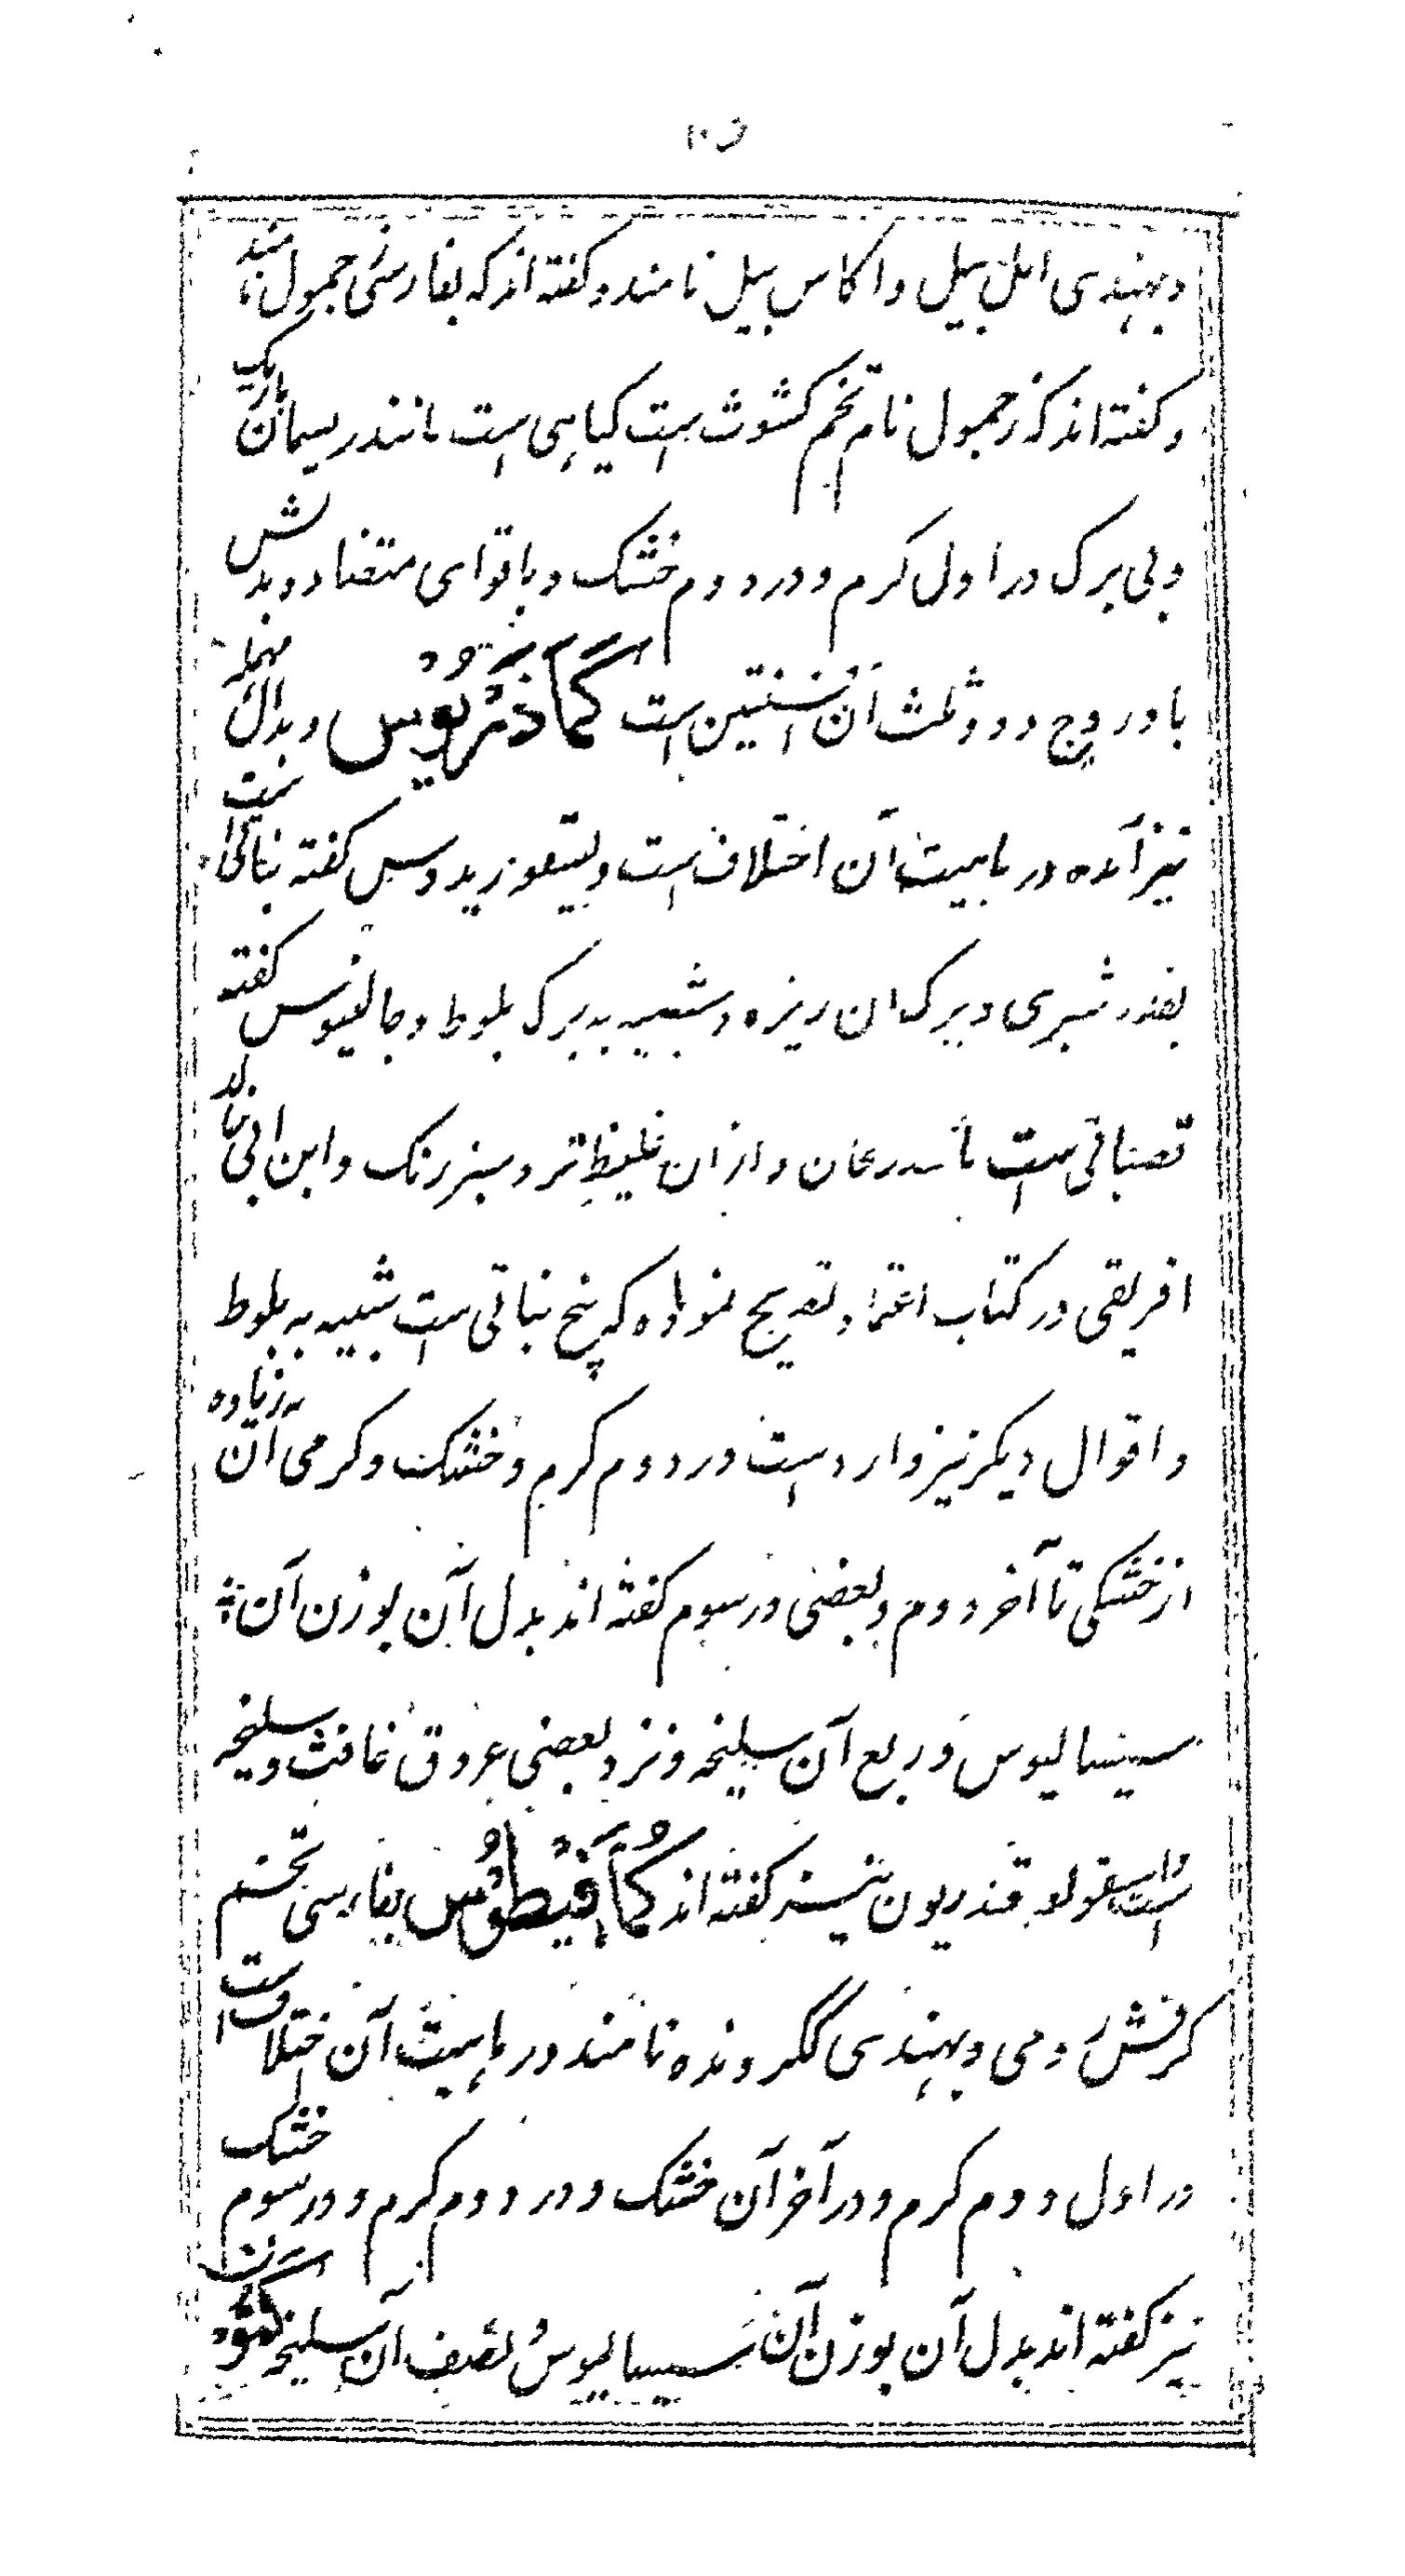 وبهندی امل بیل و اکاس بیل نامند و کفته اند که بفارسی زجمول نامند
و کفته اند که زجمول نام تخم کشوث است کیاهی است مانند ریسمان باریک
و بی برک در اول کرم و در دوم خشک و با قوای متضاد و بدلش
بادروج و دو ثلث آن افسنتین است کماذریوس و بدال مهمله
نیز آمده در ماهیت آن اختلاف است و دیسقوریدوس کفته نباتی است
بقدر شبری و برک ان ریزه و شبیه به برک بلوط و جالینوس کفته
و از ان غلیظ تر و سبز رنک و ابن ابی خالد
افریقی در کتاب اعتماد تصریح نموده که بیخ نباتی است شبیه به بلوط
و اقوال دیکر نیز وارد است در دوم کرم و خشک و کرمی آن زیاده
از خشکی تا آخر دوم و بعضی در سوم کفته اند بدل آن بوزن آن
سیسالیوس و ربع آن سلیخه و نزد بعضی عروق غافث و سلیخه
است و اسقولوقندریون نیز کفته اند کمافیطوس بفارسی تخم
کرفش رومی و بهندی ککرونده نامند در ماهیت آن اختلاف است
در اول دوم کرم و در آخر آن خشک و در دوم کرم و در سوم خشک
نیز کفته اند بدل آن بوزن آن سیسالیوس و نصف آن سلیخه